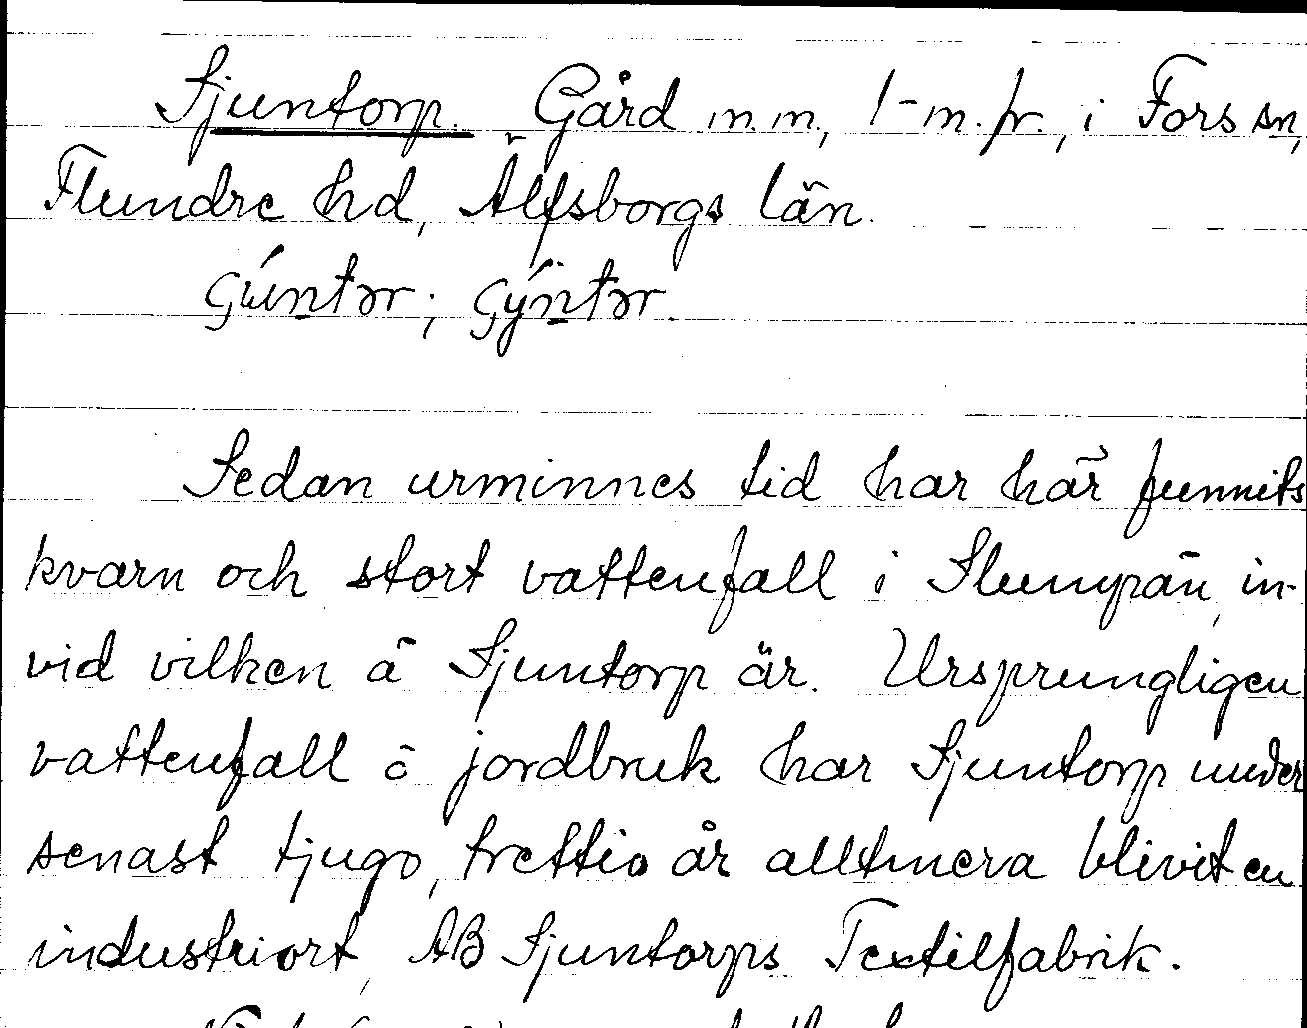 Sjuntorp. Gård m.m., 1-m.fr., i Fors sn,
Flundre hd, Älfsborgs län.
Sedan urminnes tid har här funnits
kvarn och stort vattenfall i Slumpån, in-
vid vilken å Sjuntorp är. Ursprungligen
vattenfall o jordbruk har Sjuntorp under
senast tjugo, trettio år alltmera blivit en
industriort, AB Sjuntorps Textilfabrik.